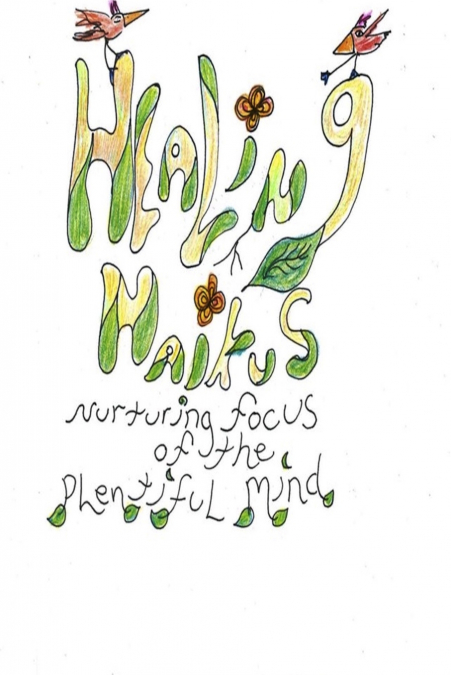 HEALiNg
HaikuS
Nurturing focus
of the
Plentiful Mind